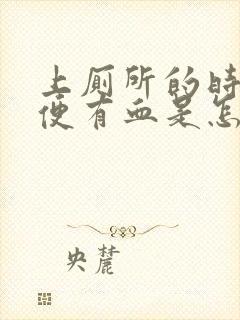 上厕所的时
便有血是怎
央麓